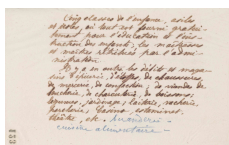 Cinq classes de l'enfance, asiles
et écoles, où tout est fourni gratui-
tement pour l'éducation et l'ins-
truction des enfants; les maîtresses
et maîtres attachés par l'admi-
nistration.
Il y a en outre les débits et maga-
sins d'épicerie, d'étoffes, de chaussures,
de mercerie, de confection, de viandes de
boucherie, de charcuterie, de boissons,
légumes, jardinage, laiterie, rocherie,
porcherie, casino, estaminet,
théâtre, etc.
cuisine alimentaire -